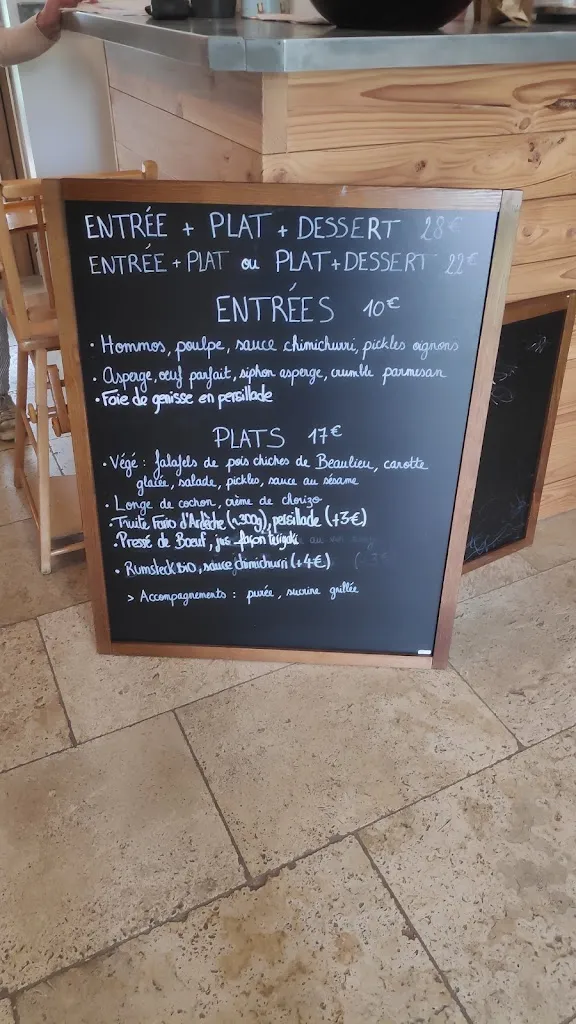 ENTRÉE + PLAT + DESSERT 28€
ENTRÉE + PLAT ou PLAT + DESSERT 22€
ENTRÉES 10€
• Hommos, poulpe, sauce chimichurri, pickles oignons
• Asperge, oeuf parfait, siphon asperge, crumble parmesan
• Foie de genisse en persillade
PLATS 17€
• Végé : falafels de pois chiches de Beaulieu, carotte
glacée, salade, pickles, sauce au sésame
• Longe de cochon, crème de chorizo
• Truite Fario d'Ardèche (~300g), persillade (+3€)
• Pressé de Boeuf, jus façon teriyaki
• Rumsteck BIO, sauce chimichurri (+4€)
> Accompagnements : purée, sucrine grillée